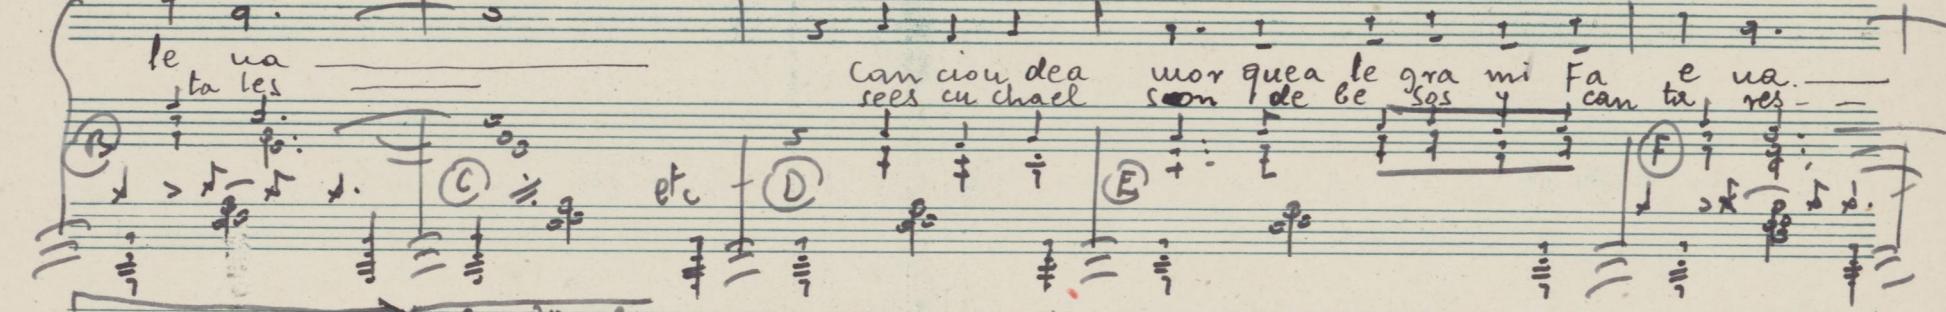 le va can cion dea mor quea le gra mi Fa e va.
ta les sees cu chael son de be sos y can ta res
B C etc D E F